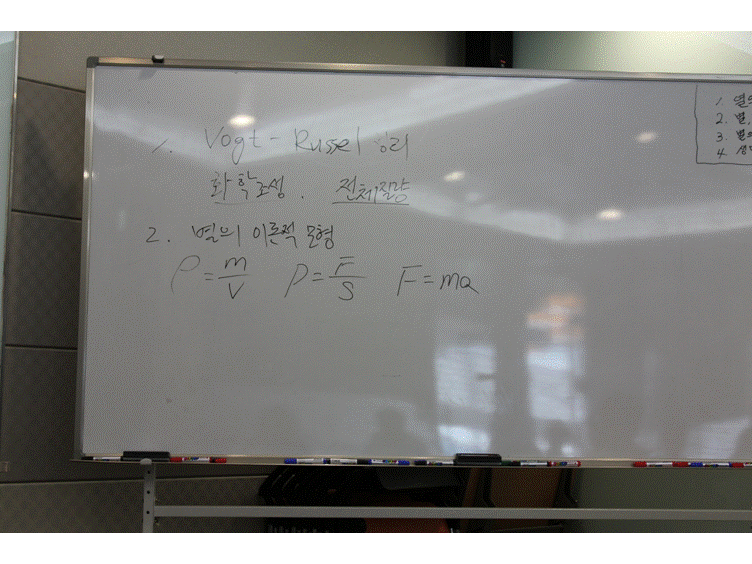 1. Vogt - Russel 정리
화학조성. 전체질량
2. 별의 이론적 모형
ρ = m/V P = F/S F = ma
1. 별의
2. 별,
3. 별의
4.